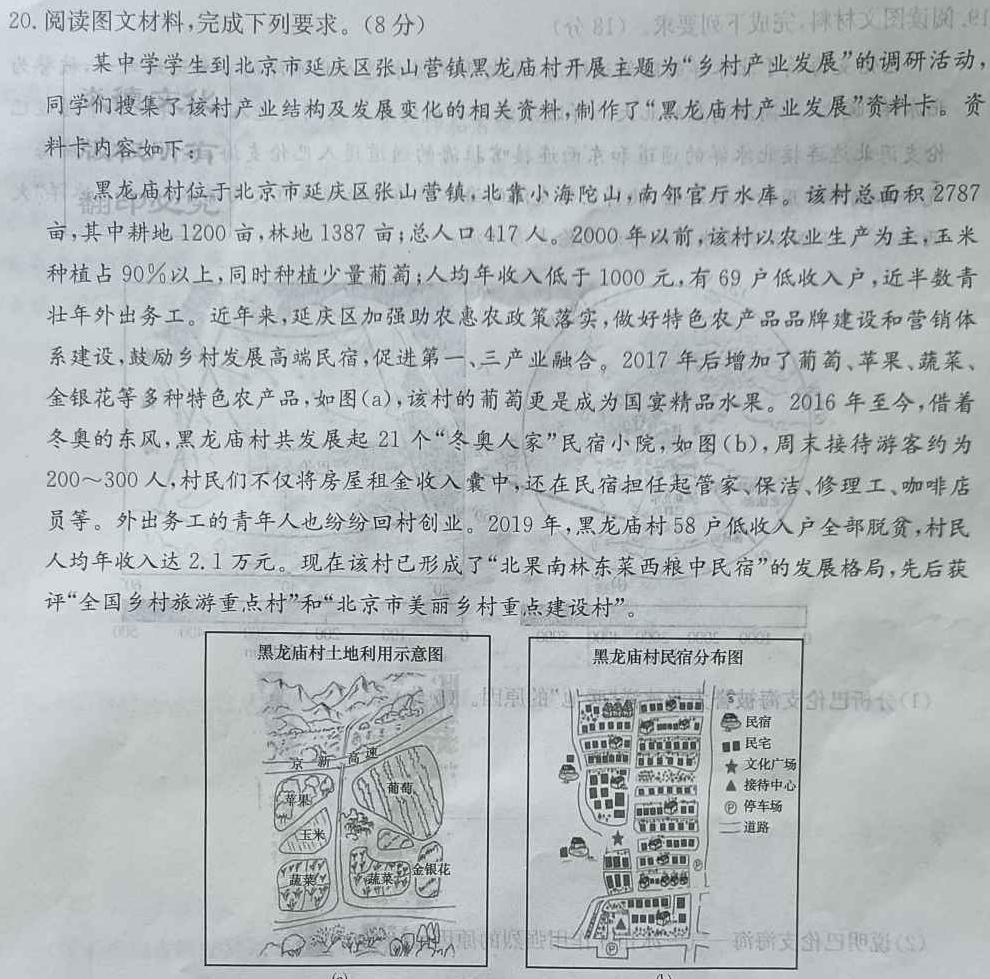 20. 阅读图文材料,完成下列要求。(8分)
某中学学生到北京市延庆区张山营镇黑龙庙村开展主题为“乡村产业发展”的调研活动,
同学们搜集了该村产业结构及发展变化的相关资料,制作了“黑龙庙村产业发展”资料卡。资
料卡内容如下:
黑龙庙村位于北京市延庆区张山营镇,北靠小海陀山,南邻官厅水库。该村总面积2787
亩,其中耕地1200亩,林地1387亩;总人口417人。2000年以前,该村以农业生产为主,玉米
种植占90%以上,同时种植少量葡萄;人均年收入低于1000元,有69户低收入户,近半数青
壮年外出务工。近年来,延庆区加强助农惠农政策落实,做好特色农产品品牌建设和营销体
系建设,鼓励乡村发展高端民宿,促进第一、三产业融合。2017年后增加了葡萄、苹果、蔬菜、
金银花等多种特色农产品,如图(a),该村的葡萄更是成为国宴精品水果。2016年至今,借着
冬奥的东风,黑龙庙村共发展起21个“冬奥人家”民宿小院,如图(b),周末接待游客约为
200~300人,村民们不仅将房屋租金收入囊中,还在民宿担任起管家、保洁、修理工、咖啡店
员等。外出务工的青年人也纷纷回村创业。2019年,黑龙庙村58户低收入户全部脱贫,村民
人均年收入达2.1万元。现在该村已形成了“北果南林东菜西粮中民宿”的发展格局,先后获
评“全国乡村旅游重点村”和“北京市美丽乡村重点建设村”。
黑龙庙村土地利用示意图
京新高速
苹果
葡萄
玉米
蔬菜
蔬菜
金银花
黑龙庙村民宿分布图
民宿
民宅
文化广场
接待中心
P 停车场
道路
P
P